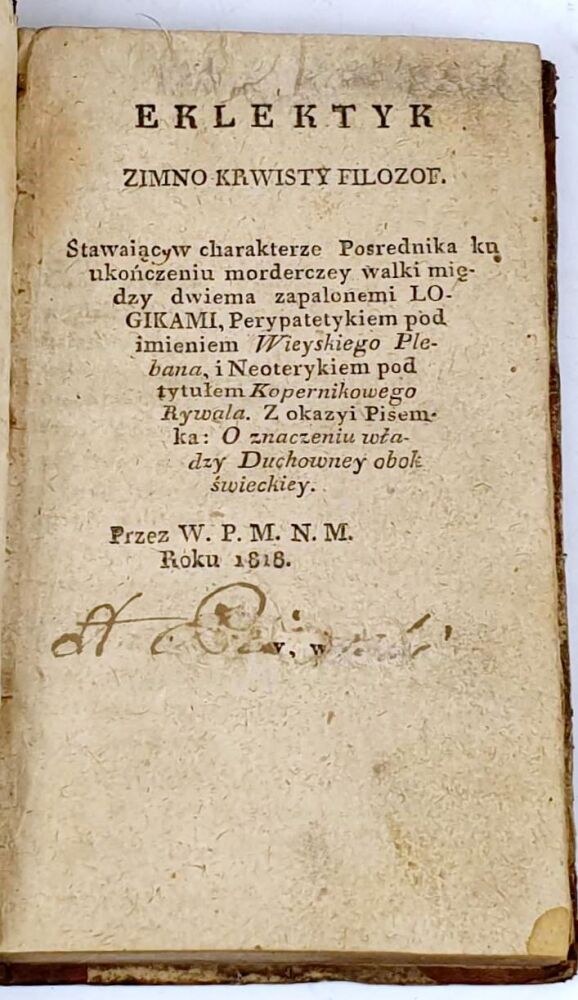 EKLEKTYK
ZIMNO KRWISTY FILOZOF.
Stawaiącyw charakterze Posrednika ku
ukończeniu morderczey walki mię-
dzy dwiema zapalonemi LO-
GIKAMI, Perypatetykiem pod
imieniem Wieyskiego Ple-
bana, i Neoterykiem pod
tytułem Kopernikowego
Rywala. Z okazyi Pisem-
ka: O znaczeniu wła-
dzy Duchowney obok
świeckiey.
Przez W. P. M. N. M.
Roku 1818.